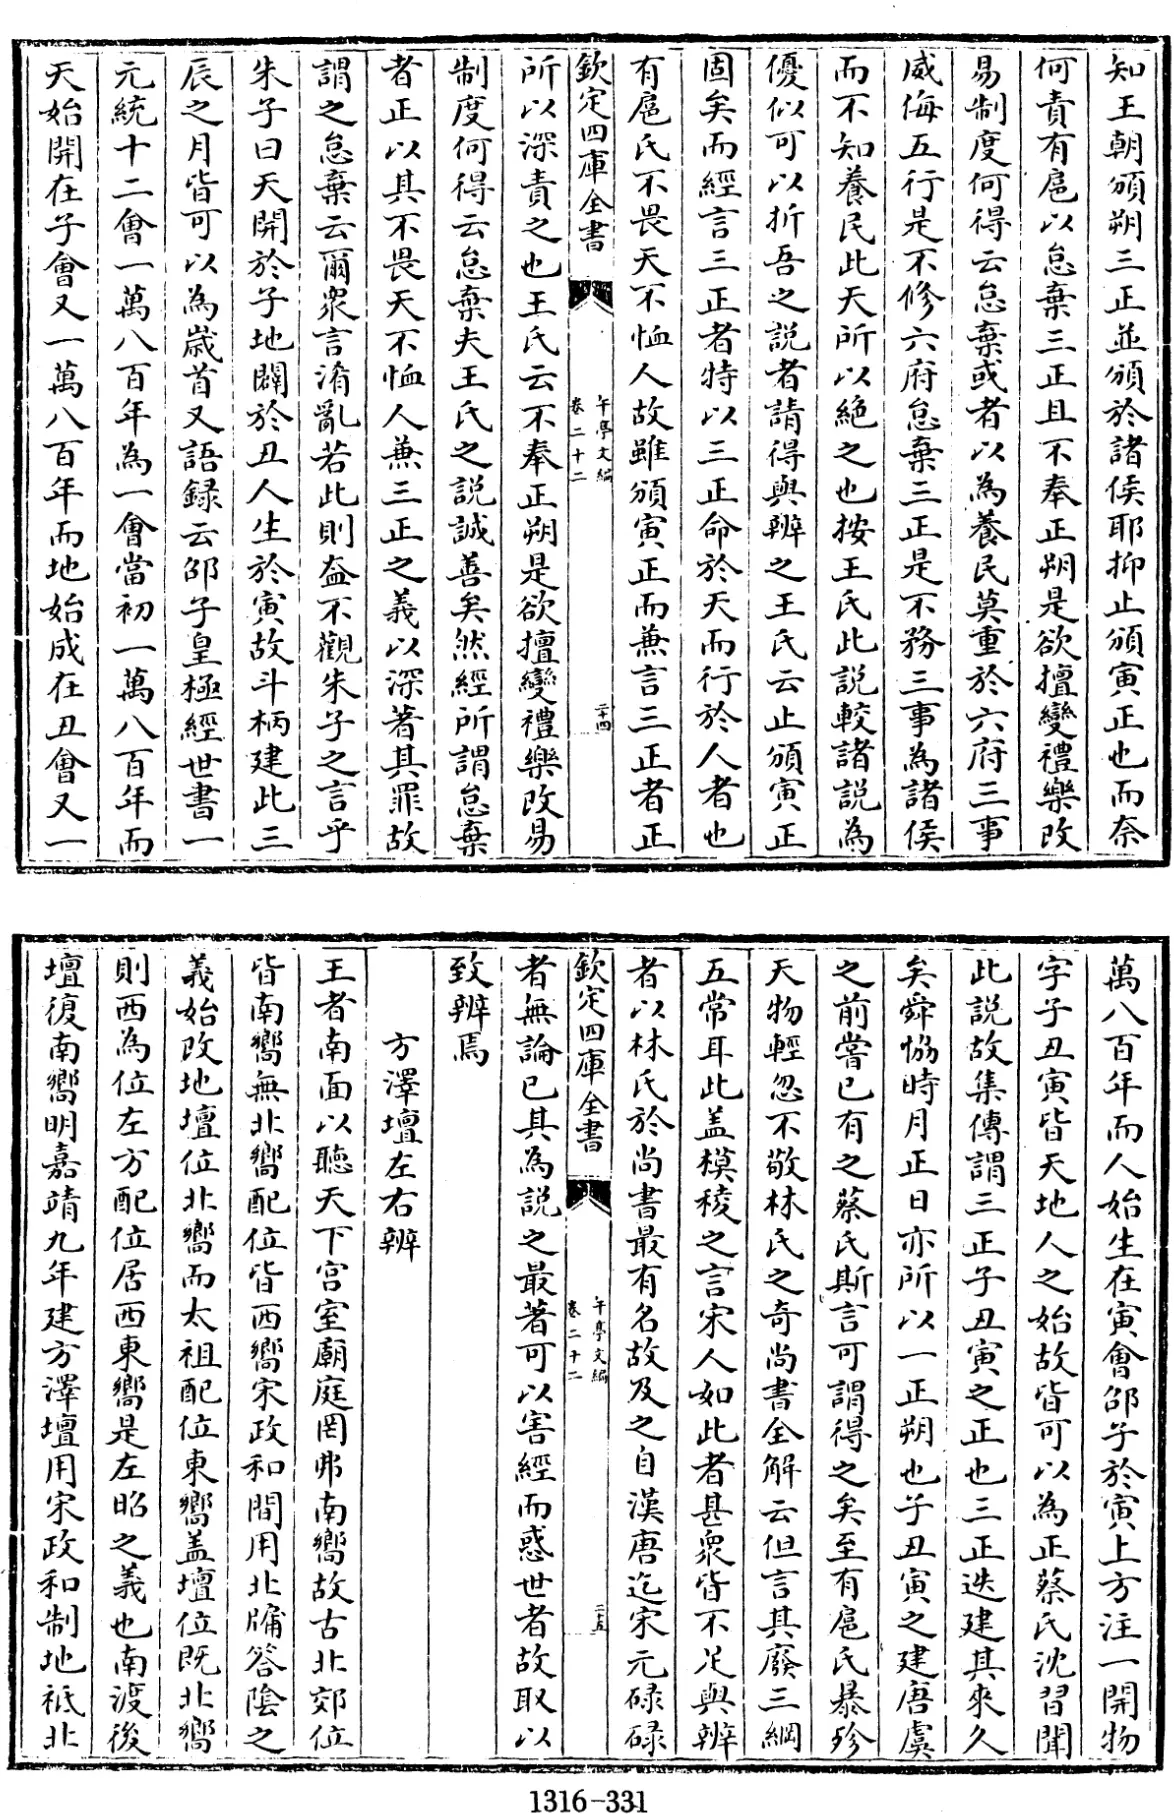 知王朝頒朔三正並頒於諸侯耶抑止頒寅正也而奈
何責有扈以怠棄三正且不奉正朔是欲擅變禮樂改
易制度何得云怠棄或者以為養民莫重於六府三事
威侮五行是不修六府怠棄三正是不務三事為諸侯
而不知養民此天所以絶之也按王氏此説較諸説為
優似可以折吾之説者請得與辨之王氏云止頒寅正
固矣而經言三正者特以三正命於天而行於人者也
有扈氏不畏天不恤人故雖頒寅正而兼言三正者正
欽定四庫全書
午亭文編
卷二十二
二十四
所以深責之也王氏云不奉正朔是欲擅變禮樂改易
制度何得云怠棄夫王氏之説誠善矣然經所謂怠棄
者正以其不畏天不恤人兼三正之義以深著其罪故
謂之怠棄云爾衆言淆亂若此則盍不觀朱子之言乎
朱子曰天開於子地闢於丑人生於寅故斗柄建此三
辰之月皆可以為歲首又語録云邵子皇極經世書一
元統十二會一萬八百年為一會當初一萬八百年而
天始開在子會又一萬八百年而地始成在丑會又一
萬八百年而人始生在寅會邵子於寅上方注一開物
字子丑寅皆天地人之始故皆可以為正蔡氏沈習聞
此説故集傳謂三正子丑寅之正也三正迭建其來久
矣舜協時月正日亦所以一正朔也子丑寅之建唐虞
之前當已有之蔡氏斯言可謂得之矣至有扈氏暴殄
天物輕忽不敬林氏之奇尚書全解云但言其廢三綱
五常耳此盖模稜之言宋人如此者甚衆皆不足與辨
者以林氏於尚書最有名故及之自漢唐迄宋元碌碌
欽定四庫全書
午亭文編
卷二十二
二十五
者無論已其為説之最著可以害經而惑世者故取以
致辨焉
方澤壇左右辨
王者南面以聽天下宫室廟庭罔弗南嚮故古北郊位
皆南嚮無北嚮配位皆西嚮宋政和間用北牖答陰之
義始改地壇位北嚮而太祖配位東嚮盖壇位既北嚮
則西為位左方配位居西東嚮是左昭之義也南渡後
壇復南嚮明嘉靖九年建方澤壇用宋政和制地祗北
1316-331